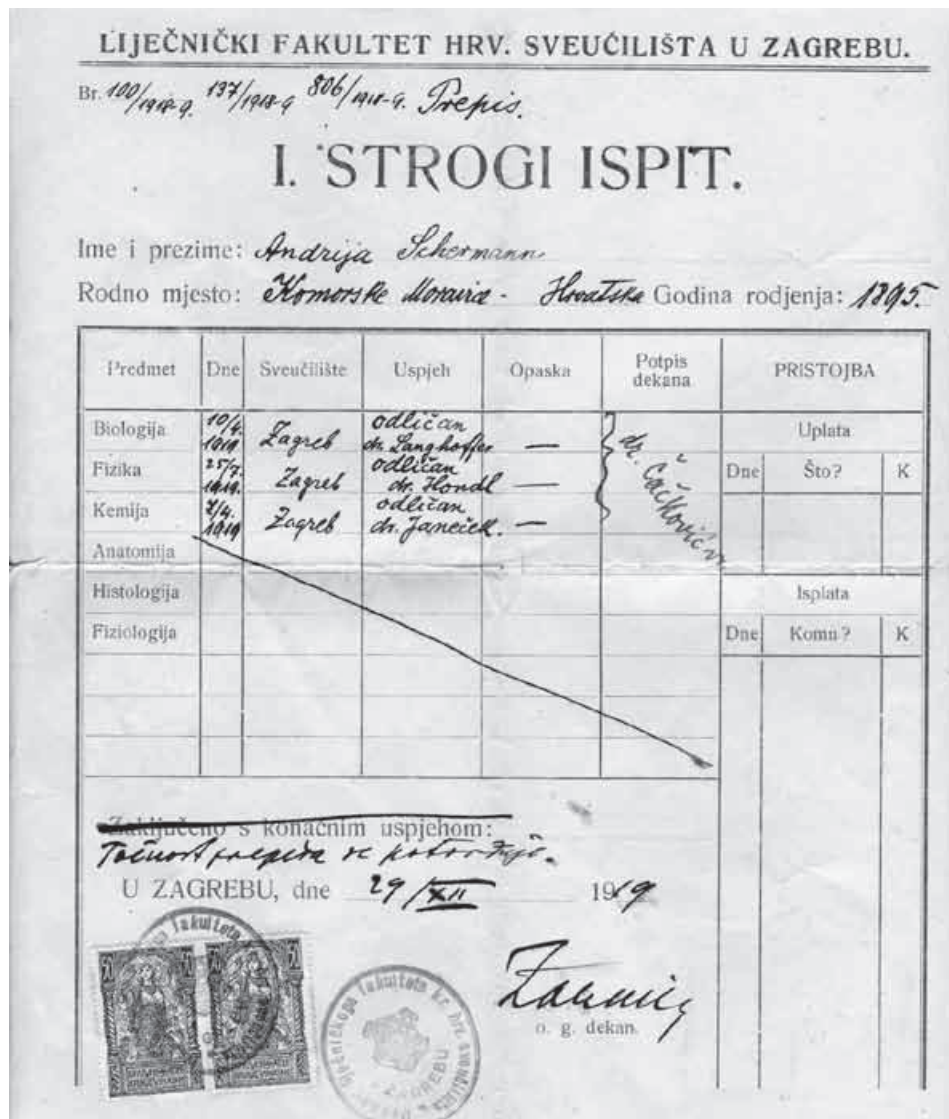 LIJEČNIČKI FAKULTET HRV. SVEUČILIŠTA U ZAGREBU.
Br. 100/1918-9. 137/1918-9 806/1918-9. Prepis.
I. STROGI ISPIT.
Ime i prezime: Andrija Schermann
Rodno mjesto: Komorske Moravice - Hrvatska Godina rodjenja: 1895.
Predmet Dne Sveučilište Uspjeh Opaska Potpis dekana PRISTOJBA
Biologija 10/4. 1919 Zagreb odličan dr. Langhoffer — Uplata
Fizika 1919. Zagreb odličan dr. Hondl — Dne Što? K
Kemija 1919 Zagreb odličan dr. Janeček. —
dr. Čačković
Anatomija
Histologija Isplata
Fiziologija Dne Komu? K
Zaključeno s konačnim uspjehom:
Točnost prepisa se potvrdjuje.
U ZAGREBU, dne 29/XII 1919
o. g. dekan.
50 50
fakulteta
liječničkoga fakulteta kr. hrv. sveučilišta
ZAGREBU